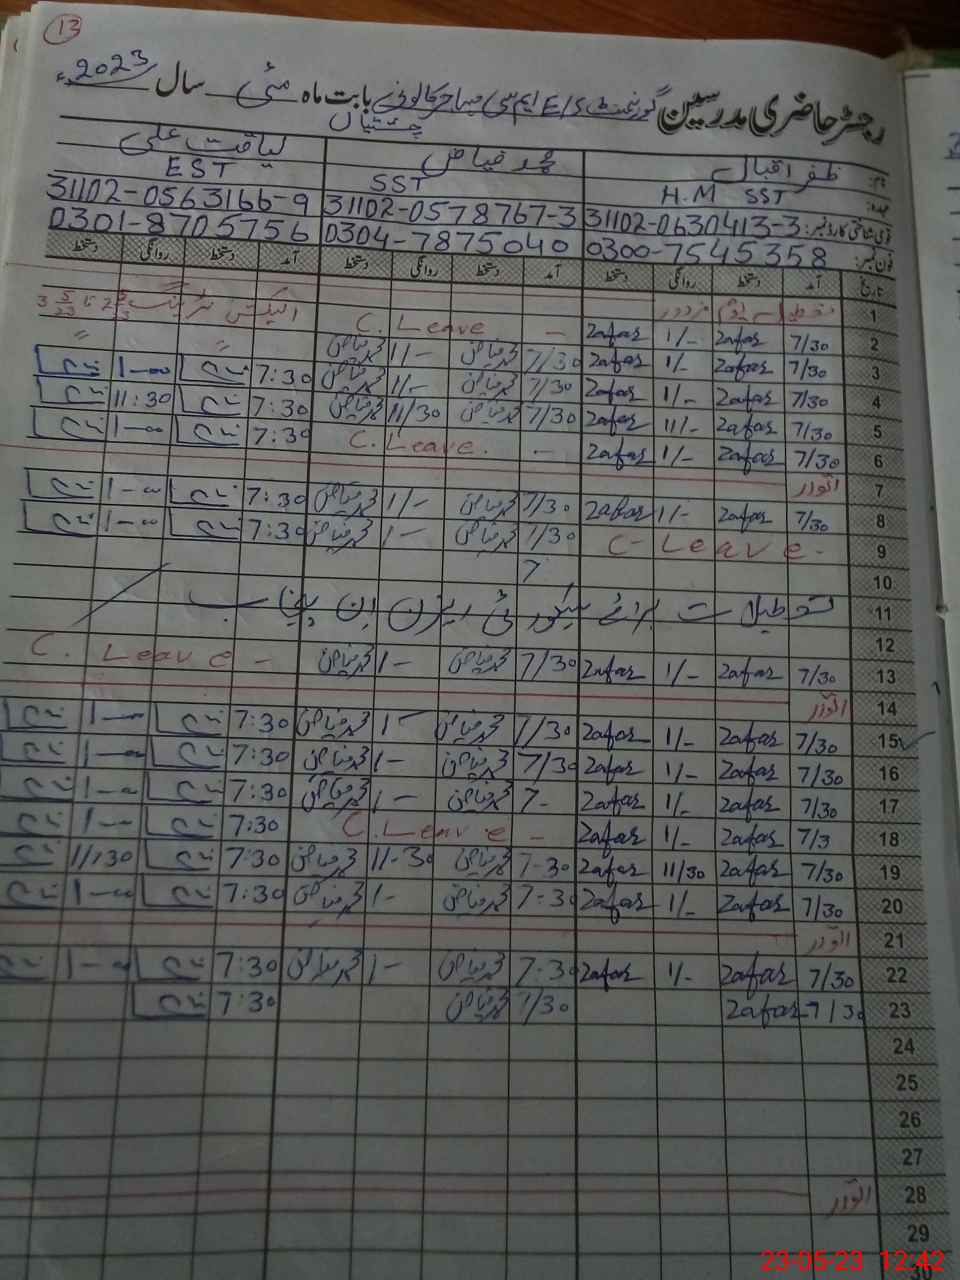 13
رجسٹر حاضری مدرسین گورنمنٹ E/S ایم سی مہاجر کالونی بابت ماہ مئی سال 2023ء
چشتیاں
نام: ظفر اقبال محمد فیاض لیاقت علی
عہدہ: H.M SST SST EST
قومی شناختی کارڈ نمبر: 31102-0630413-3 31102-0578767-3 31102-0563166-9
فون نمبر: 0300-7545358 0304-7875040 0301-8705756
تاریخ آمد دستخط روانگی دستخط آمد دستخط روانگی دستخط آمد دستخط روانگی دستخط
1 تعطیل یوم مزدور
2 7/30 Zafar 1/- Zafar - C. Leave
3 7/30 Zafar 1/- Zafar 7/30 محمد فیاض 1/- محمد فیاض " "
4 7/30 Zafar 1/- Zafar 7/30 محمد فیاض 1/- محمد فیاض 7:30 1-00
5 7/30 Zafar 11/- Zafar 7/30 محمد فیاض 11/30 محمد فیاض 7:30 11:30
6 7/30 Zafar 1/- Zafar - C. Leave. 7:30 1-00
7 اتوار
8 7/30 Zafar 1/- Zafar 7/30 محمد فیاض 1/- محمد فیاض 7:30 1-00
9 C-Leave- 7/30 محمد فیاض 1- محمد فیاض 7:30 1-00
10 7
11 تعطیلات
12
13 7/30 Zafar 1/- Zafar 7/30 محمد فیاض 1- محمد فیاض C. Leave -
14 اتوار
15 7/30 Zafar 1/- Zafar 7/30 محمد فیاض 1- محمد فیاض 7:30 1-00
16 7/30 Zafar 1/- Zafar 7/30 محمد فیاض 1- محمد فیاض 7:30 1-00
17 7/30 Zafar 1/- Zafar 7- محمد فیاض 1- محمد فیاض 7:30 1-00
18 7/3 Zafar 1/- Zafar - C. Leave 7:30 1-00
19 7/30 Zafar 11/30 Zafar 7-30 محمد فیاض 11-30 محمد فیاض 7:30 11/30
20 7/30 Zafar 1/- Zafar 7-30 محمد فیاض 1- محمد فیاض 7:30 1-00
21 اتوار
22 7/30 Zafar 1/- Zafar 7-30 محمد فیاض 1- محمد فیاض 7:30 1-00
23 7/30 Zafar 7/30 محمد فیاض 7:30
24
25
26
27
28 اتوار
29
30
23-05-23 12:42